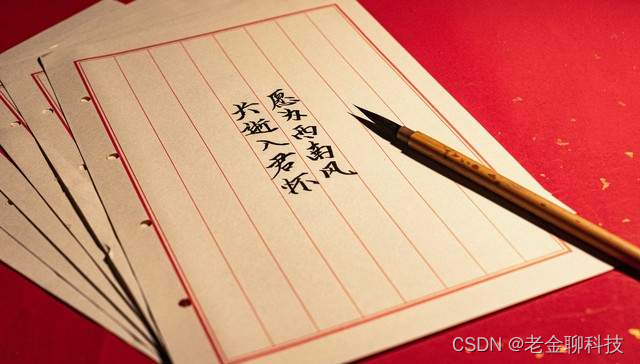 愿为西南风
长逝入君怀
CSDN @老金聊科技